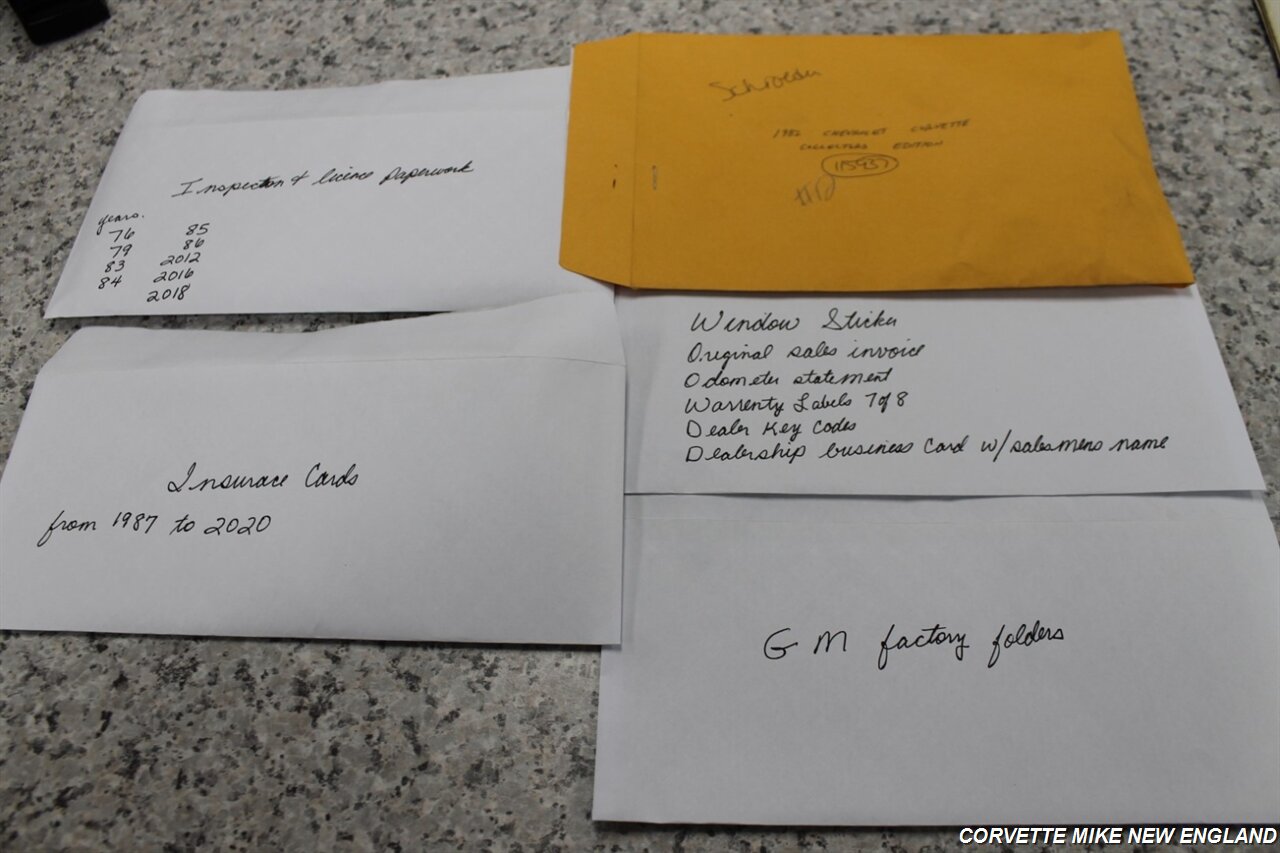 Inspection & licence paperwork
years.
76 85
79 86
83 2012
84 2016
2018
Schroeder
1982 CHEVROLET CORVETTE
COLLECTORS EDITION
115937
Window Sticker
Original sales invoice
Odometer statement
Warrenty Labels 7 of 8
Dealer Key Codes
Dealership business card w/salesmens name
Insurace Cards
from 1987 to 2020
GM factory folders
CORVETTE MIKE NEW ENGLAND